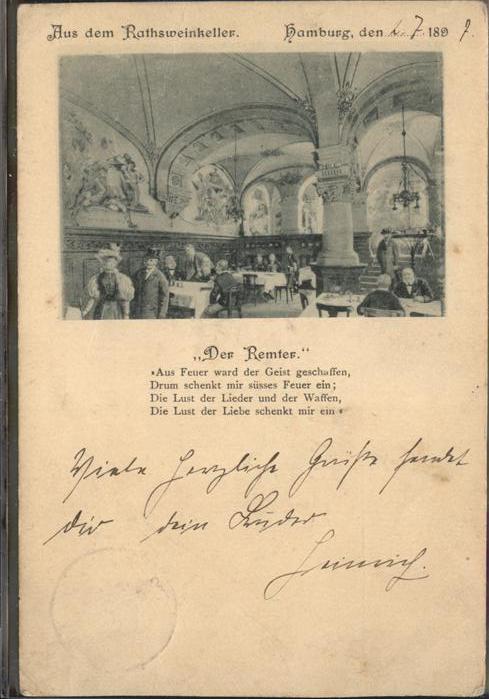 Aus dem Rathsweinkeller. Hamburg, den 7. 1899.
„Der Remter.“
»Aus Feuer ward der Geist geschaffen,
Drum schenkt mir süsses Feuer ein;
Die Lust der Lieder und der Waffen,
Die Lust der Liebe schenkt mir ein«
Viele herzliche Grüße sendet
dir dein Bruder
Heinrich.